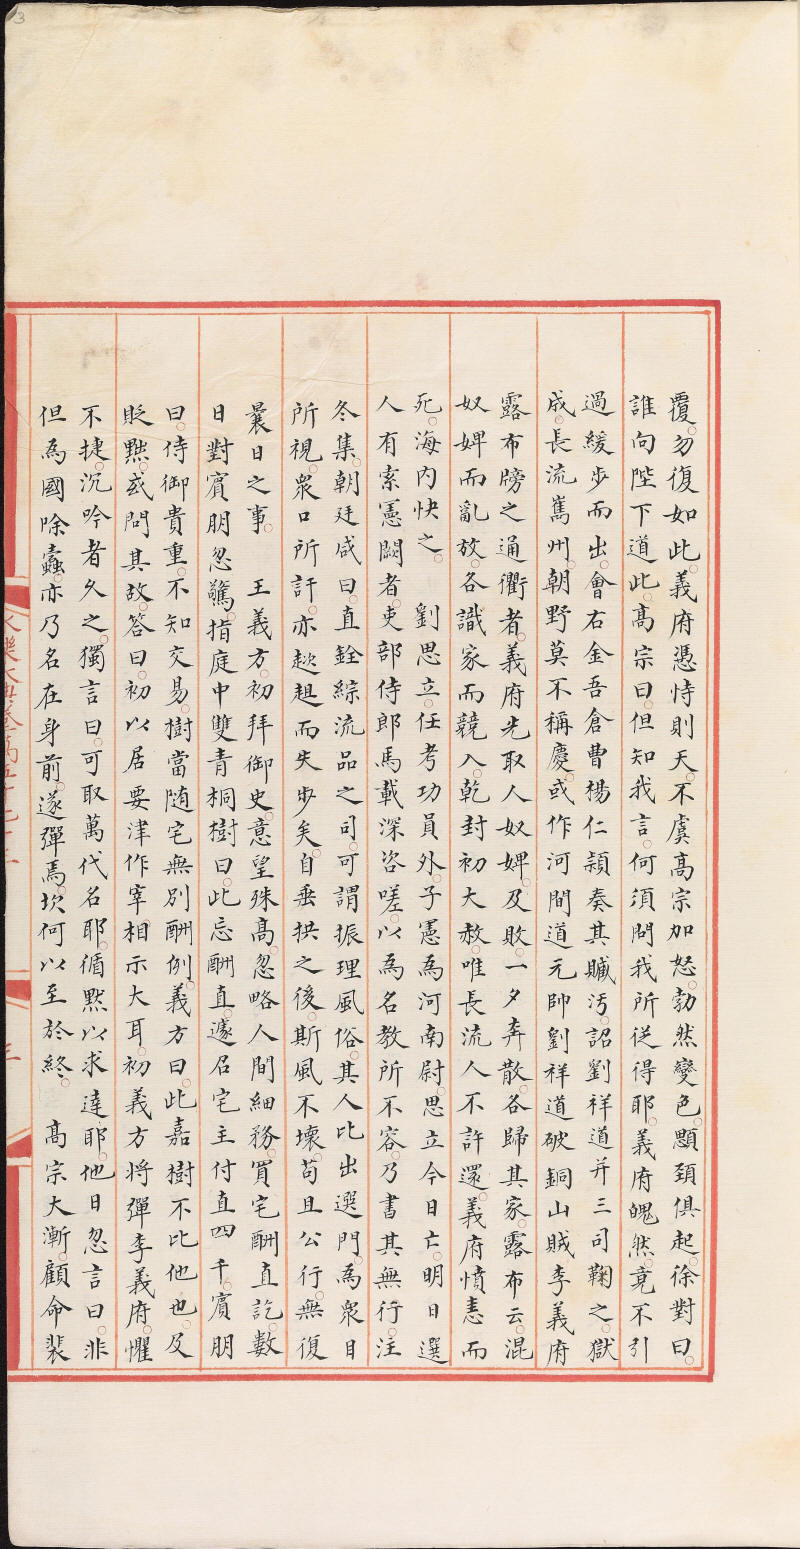 覆。勿復如此。義府憑恃則天。不虞高宗加怒。勃然變色。顋頸俱起。徐對曰。
誰向陛下道此。高宗曰。但知我言。何須問我所從得耶。義府䰟然。竟不引
過緩步而出。會右金吾倉曹楊仁頴奏其贓汚。詔劉祥道并三司鞠之。獄
成。長流嶲州。朝野莫不稱慶。或作河間道元帥劉祥道破銅山賊李義府
露布牓之通衢者。義府先取人奴婢。及敗。一夕奔散。各歸其家。露布云。混
奴婢而亂放。各識家而競入。乾封初大赦。唯長流人不許還。義府憤恚而
死。海內快之。 劉思立任考功員外。子憲為河南尉。思立今日亡。明日選
人有索憲闕者。吏部侍郎馬載深咨嗟。以為名教所不容。乃書其無行。注
冬集。朝廷咸曰。直銓綜流品之司。可謂振理風俗。其人比出選門。為衆目
所視。衆口所訐。亦趑趄而失步矣。自垂拱之後。斯風不壞。苟且公行。無復
曩日之事。 王義方。初拜御史。意望殊高。忽略人間細務。買宅酬直訖。數
日對賓朋忽驚。指庭中雙青桐樹曰。此忘酬直。遽召宅主付直四千。賓朋
曰。侍御貴重。不知交易。樹當隨宅無別酬例。義方曰。此嘉樹不比他也。及
貶黜。或問其故。答曰。初以居要津作宰。相示大耳。初義方將彈李義府。懼
不捷。沉吟者久之。獨言曰。可取萬代名耶。循默以求達耶。他日忽言曰。非
但為國除蠧。亦乃名在身前。遂彈焉。坎何以至於終。 高宗大漸。顧命裴